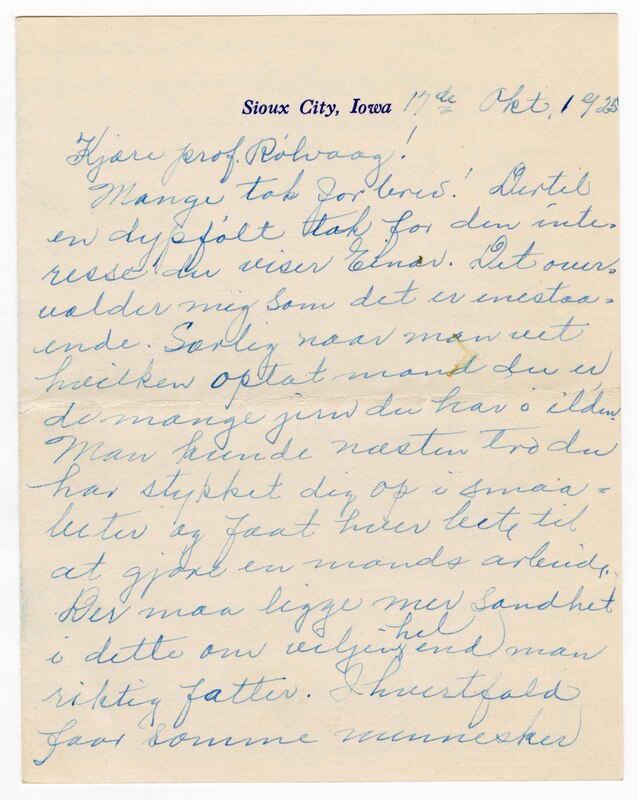 Sioux City, Iowa 17de Okt, 1925
Kjære prof. Rölvaag!
Mange tak for brev! Dertil
en dypfølt tak for den inte-
resse du viser Einar. Det over-
vælder mig som det er enestaa-
ende. Særlig naar man vet
hvilken optat mand du er
de mange jern du har i ilden.
Man kunde næsten tro du
har stykket dig op i smaa-
beter og faat hver bete til
at gjøre en mands arbeide.
Der maa ligge mer sandhet
i dette om viljen hel end man
riktig fatter. Ihvertfald
faar somme mennesker